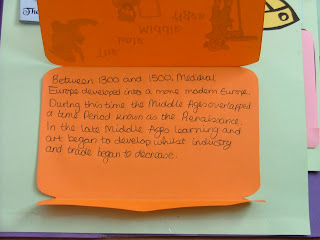 The
Ages
Middle
Late
The
Between 1300 and 1500, Medieval
Europe developed into a more modern Europe.
During this time the Middle Ages overlapped
a time Period known as the Renaissance.
In the late Middle Ages learning and
art began to develop whilst industry
and trade began to decrease.